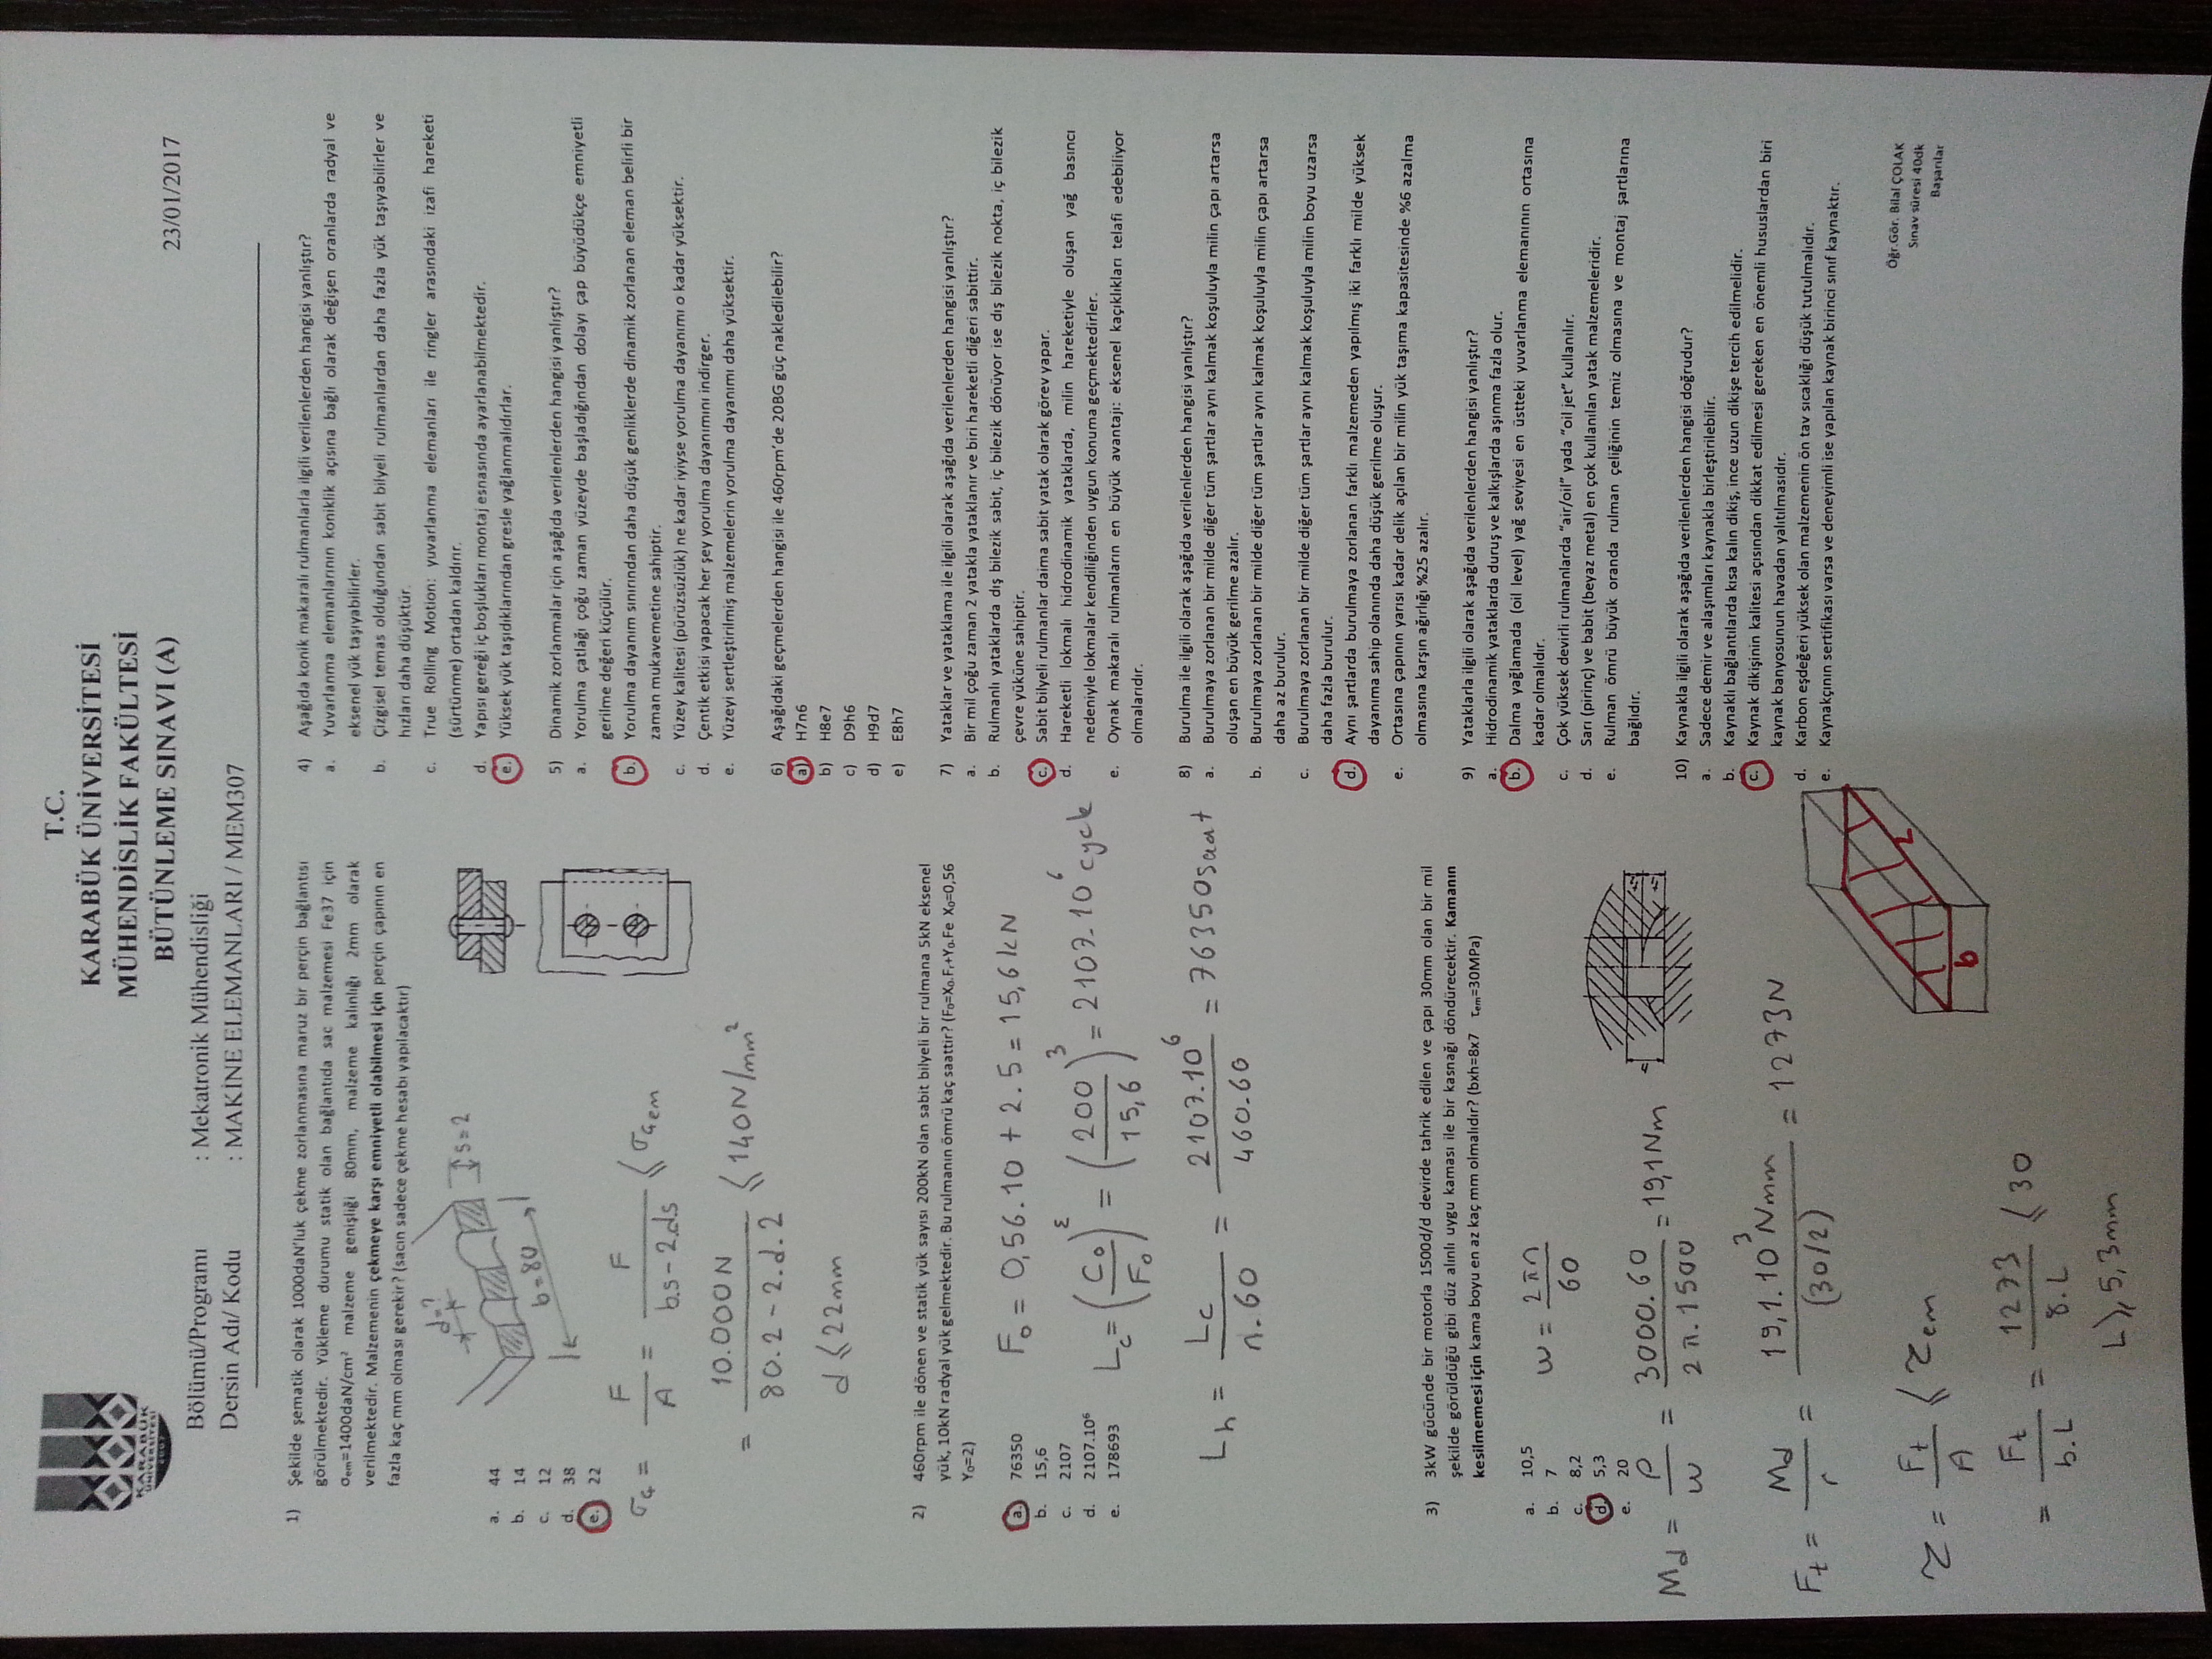 KARABÜK
ÜNİVERSİTESİ
2007
T.C.
KARABÜK ÜNİVERSİTESİ
MÜHENDİSLİK FAKÜLTESİ
BÜTÜNLEME SINAVI (A)
23/01/2017
Bölümü/Programı : Mekatronik Mühendisliği
Dersin Adı/ Kodu : MAKİNE ELEMANLARI / MEM307
1) Şekilde şematik olarak 1000daN'luk çekme zorlanmasına maruz bir perçin bağlantısı
görülmektedir. Yükleme durumu statik olan bağlantıda sac malzemesi Fe37 için
σem=1400daN/cm² malzeme genişliği 80mm, malzeme kalınlığı 2mm olarak
verilmektedir. Malzemenin çekmeye karşı emniyetli olabilmesi için perçin çapının en
fazla kaç mm olması gerekir? (sacın sadece çekme hesabı yapılacaktır)
d=?
s=2
b=80
a. 44
b. 14
c. 12
d. 38
e. 22
σç = F / A = F / b.s-2.d.s ⩽ σçem
= 10.000N / 80.2-2.d.2 ⩽ 140N/mm²
d ⩽ 22mm
2) 460rpm ile dönen ve statik yük sayısı 200kN olan sabit bilyeli bir rulmana 5kN eksenel
yük, 10kN radyal yük gelmektedir. Bu rulmanın ömrü kaç saattir? (F₀=X₀.Fr+Y₀.Fe X₀=0,56
Y₀=2)
a. 76350
b. 15,6
c. 2107
d. 2107.10⁶
e. 178693
F₀ = 0,56.10 + 2.5 = 15,6kN
Lc = (C₀ / F₀)^ε = (200 / 15,6)³ = 2107.10⁶ cycle
Lh = Lc / n.60 = 2107.10⁶ / 460.60 = 76350saat
3) 3kW gücünde bir motorla 1500d/d devirde tahrik edilen ve çapı 30mm olan bir mil
şekilde görüldüğü gibi düz alınlı uygu kaması ile bir kasnağı döndürecektir. Kamanın
kesilmemesi için kama boyu en az kaç mm olmalıdır? (bxh=8x7 τem=30MPa)
a. 10,5
b. 7
c. 8,2
d. 5,3
e. 20
ω = 2πn / 60
Md = P / ω = 3000.60 / 2π.1500 = 19,1Nm
Ft = Md / r = 19,1.10³Nmm / (30/2) = 1273N
b
L
τ = Ft / A ⩽ τem
= Ft / b.L = 1273 / 8.L ⩽ 30
L ⩾ 5,3mm
4) Aşağıda konik makaralı rulmanlarla ilgili verilenlerden hangisi yanlıştır?
a. Yuvarlanma elemanlarının koniklik açısına bağlı olarak değişen oranlarda radyal ve
eksenel yük taşıyabilirler.
b. Çizgisel temas olduğundan sabit bilyeli rulmanlardan daha fazla yük taşıyabilirler ve
hızları daha düşüktür.
c. True Rolling Motion: yuvarlanma elemanları ile ringler arasındaki izafi hareketi
(sürtünme) ortadan kaldırır.
d. Yapısı gereği iç boşlukları montaj esnasında ayarlanabilmektedir.
e. Yüksek yük taşıdıklarından gresle yağlanmalıdırlar.
5) Dinamik zorlanmalar için aşağıda verilenlerden hangisi yanlıştır?
a. Yorulma çatlağı çoğu zaman yüzeyde başladığından dolayı çap büyüdükçe emniyetli
gerilme değeri küçülür.
b. Yorulma dayanım sınırından daha düşük genliklerde dinamik zorlanan eleman belirli bir
zaman mukavemetine sahiptir.
c. Yüzey kalitesi (pürüzsüzlük) ne kadar iyiyse yorulma dayanımı o kadar yüksektir.
d. Çentik etkisi yapacak her şey yorulma dayanımını indirger.
e. Yüzeyi sertleştirilmiş malzemelerin yorulma dayanımı daha yüksektir.
6) Aşağıdaki geçmelerden hangisi ile 460rpm'de 20BG güç nakledilebilir?
a) H7n6
b) H8e7
c) D9h6
d) H9d7
e) E8h7
7) Yataklar ve yataklama ile ilgili olarak aşağıda verilenlerden hangisi yanlıştır?
a. Bir mil çoğu zaman 2 yatakla yataklanır ve biri hareketli diğeri sabittir.
b. Rulmanlı yataklarda dış bilezik sabit, iç bilezik dönüyor ise dış bilezik nokta, iç bilezik
çevre yüküne sahiptir.
c. Sabit bilyeli rulmanlar daima sabit yatak olarak görev yapar.
d. Hareketli lokmalı hidrodinamik yataklarda, milin hareketiyle oluşan yağ basıncı
nedeniyle lokmalar kendiliğinden uygun konuma geçmektedirler.
e. Oynak makaralı rulmanların en büyük avantajı: eksenel kaçıklıkları telafi edebiliyor
olmalarıdır.
8) Burulma ile ilgili olarak aşağıda verilenlerden hangisi yanlıştır?
a. Burulmaya zorlanan bir milde diğer tüm şartlar aynı kalmak koşuluyla milin çapı artarsa
oluşan en büyük gerilme azalır.
b. Burulmaya zorlanan bir milde diğer tüm şartlar aynı kalmak koşuluyla milin çapı artarsa
daha az burulur.
c. Burulmaya zorlanan bir milde diğer tüm şartlar aynı kalmak koşuluyla milin boyu uzarsa
daha fazla burulur.
d. Aynı şartlarda burulmaya zorlanan farklı malzemeden yapılmış iki farklı milde yüksek
dayanıma sahip olanında daha düşük gerilme oluşur.
e. Ortasına çapının yarısı kadar delik açılan bir milin yük taşıma kapasitesinde %6 azalma
olmasına karşın ağırlığı %25 azalır.
9) Yataklarla ilgili olarak aşağıda verilenlerden hangisi yanlıştır?
a. Hidrodinamik yataklarda duruş ve kalkışlarda aşınma fazla olur.
b. Dalma yağlamada (oil level) yağ seviyesi en üstteki yuvarlanma elemanının ortasına
kadar olmalıdır.
c. Çok yüksek devirli rulmanlarda "air/oil" yada "oil jet" kullanılır.
d. Sarı (pirinç) ve babit (beyaz metal) en çok kullanılan yatak malzemeleridir.
e. Rulman ömrü büyük oranda rulman çeliğinin temiz olmasına ve montaj şartlarına
bağlıdır.
10) Kaynakla ilgili olarak aşağıda verilenlerden hangisi doğrudur?
a. Sadece demir ve alaşımları kaynakla birleştirilebilir.
b. Kaynaklı bağlantılarda kısa kalın dikiş, ince uzun dikişe tercih edilmelidir.
c. Kaynak dikişinin kalitesi açısından dikkat edilmesi gereken en önemli hususlardan biri
kaynak banyosunun havadan yalıtılmasıdır.
d. Karbon eşdeğeri yüksek olan malzemenin ön tav sıcaklığı düşük tutulmalıdır.
e. Kaynakçının sertifikası varsa ve deneyimli ise yapılan kaynak birinci sınıf kaynaktır.
Öğr.Gör. Bilal ÇOLAK
Sınav süresi 40dk
Başarılar